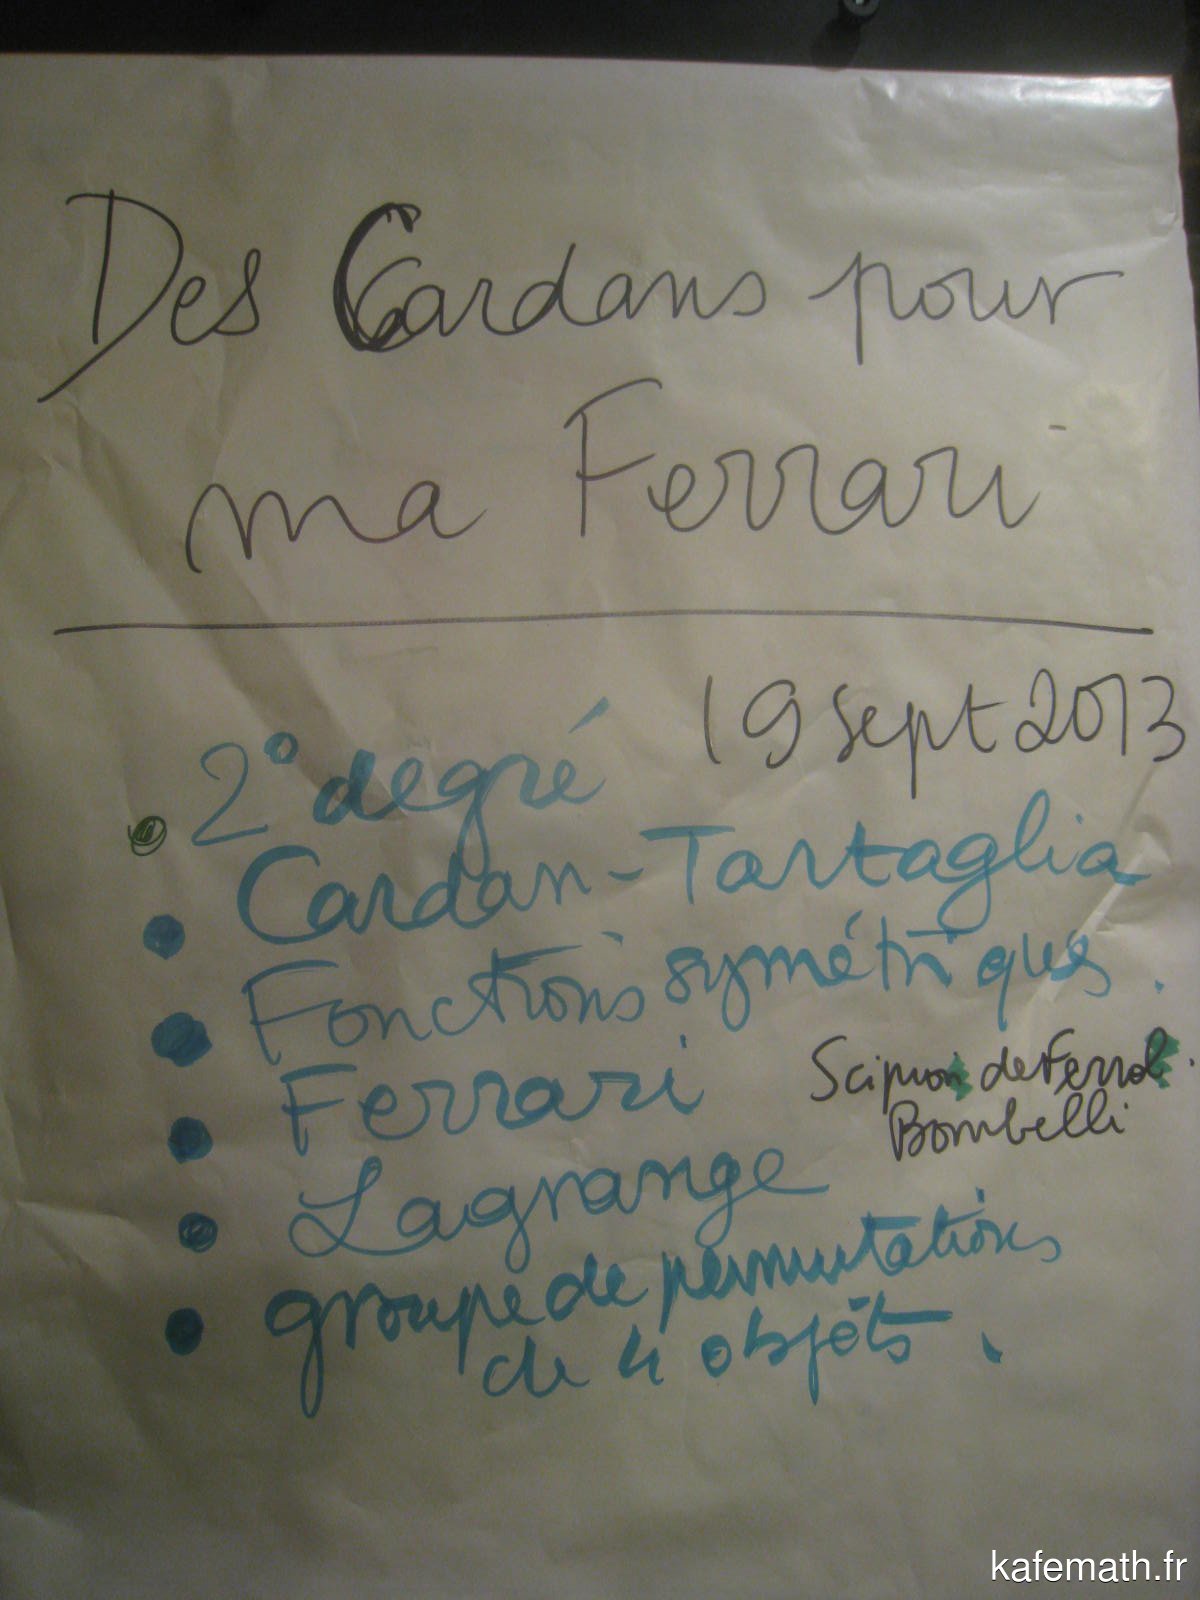 Des Cardans pour
ma Ferrari
19 sept 2013
2° degré
Cardan-Tartaglia
Fonctions symétriques.
Ferrari
Scipion de Ferrol.
Bombelli
Lagrange
groupe de permutations
de 4 objets.
kafemath.fr